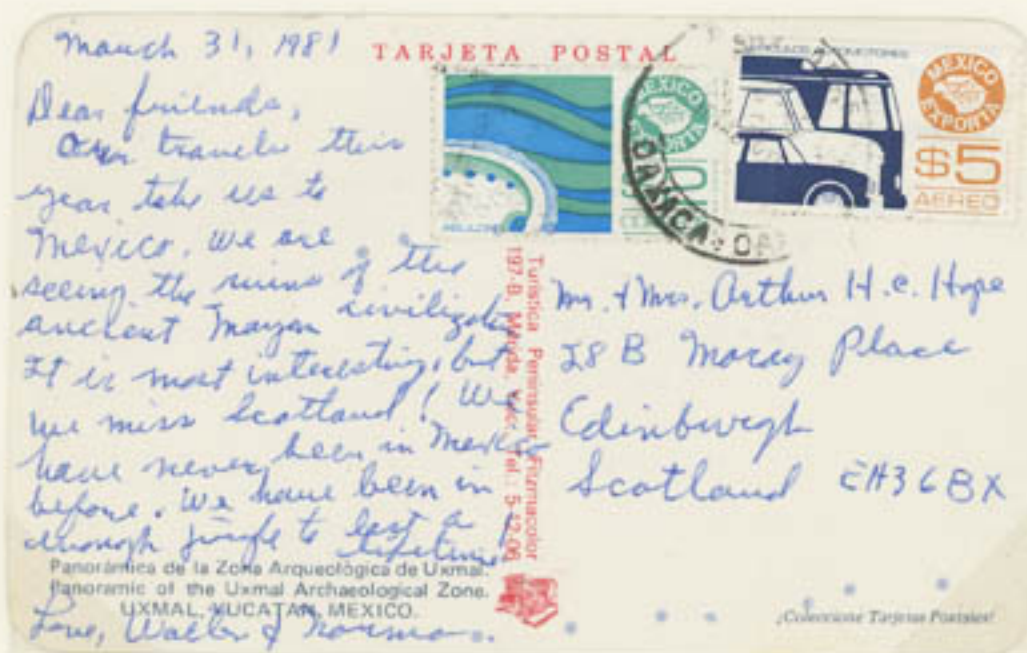 March 31, 1981
Dear friends,
Our travels this
year take us to
Mexico. We are
seeing the ruins of the
ancient Mayan civilization
It is most interesting, but
we miss Scotland! We
have never been in Mexico
before. We have been in
enough jungle to last a
lifetime!
Love, Walter & Norma.
Panorámica de la Zona Arqueológica de Uxmal.
Panoramic of the Uxmal Archaeological Zone.
UXMAL, YUCATAN, MEXICO.
TARJETA POSTAL
Turística Peninsular, Fizmacolor
197-B, Mérida, Yuc. Tel. 5-12-06
MEXICO
EXPORTA
OAXACA
AUTOMOTORES
MEXICO
EXPORTA
$5
AEREO
Mr. & Mrs. Arthur H. C. Hope
28 B Moray Place
Edinburgh
Scotland EH3 6BX
¡Coleccione Tarjetas Postales!